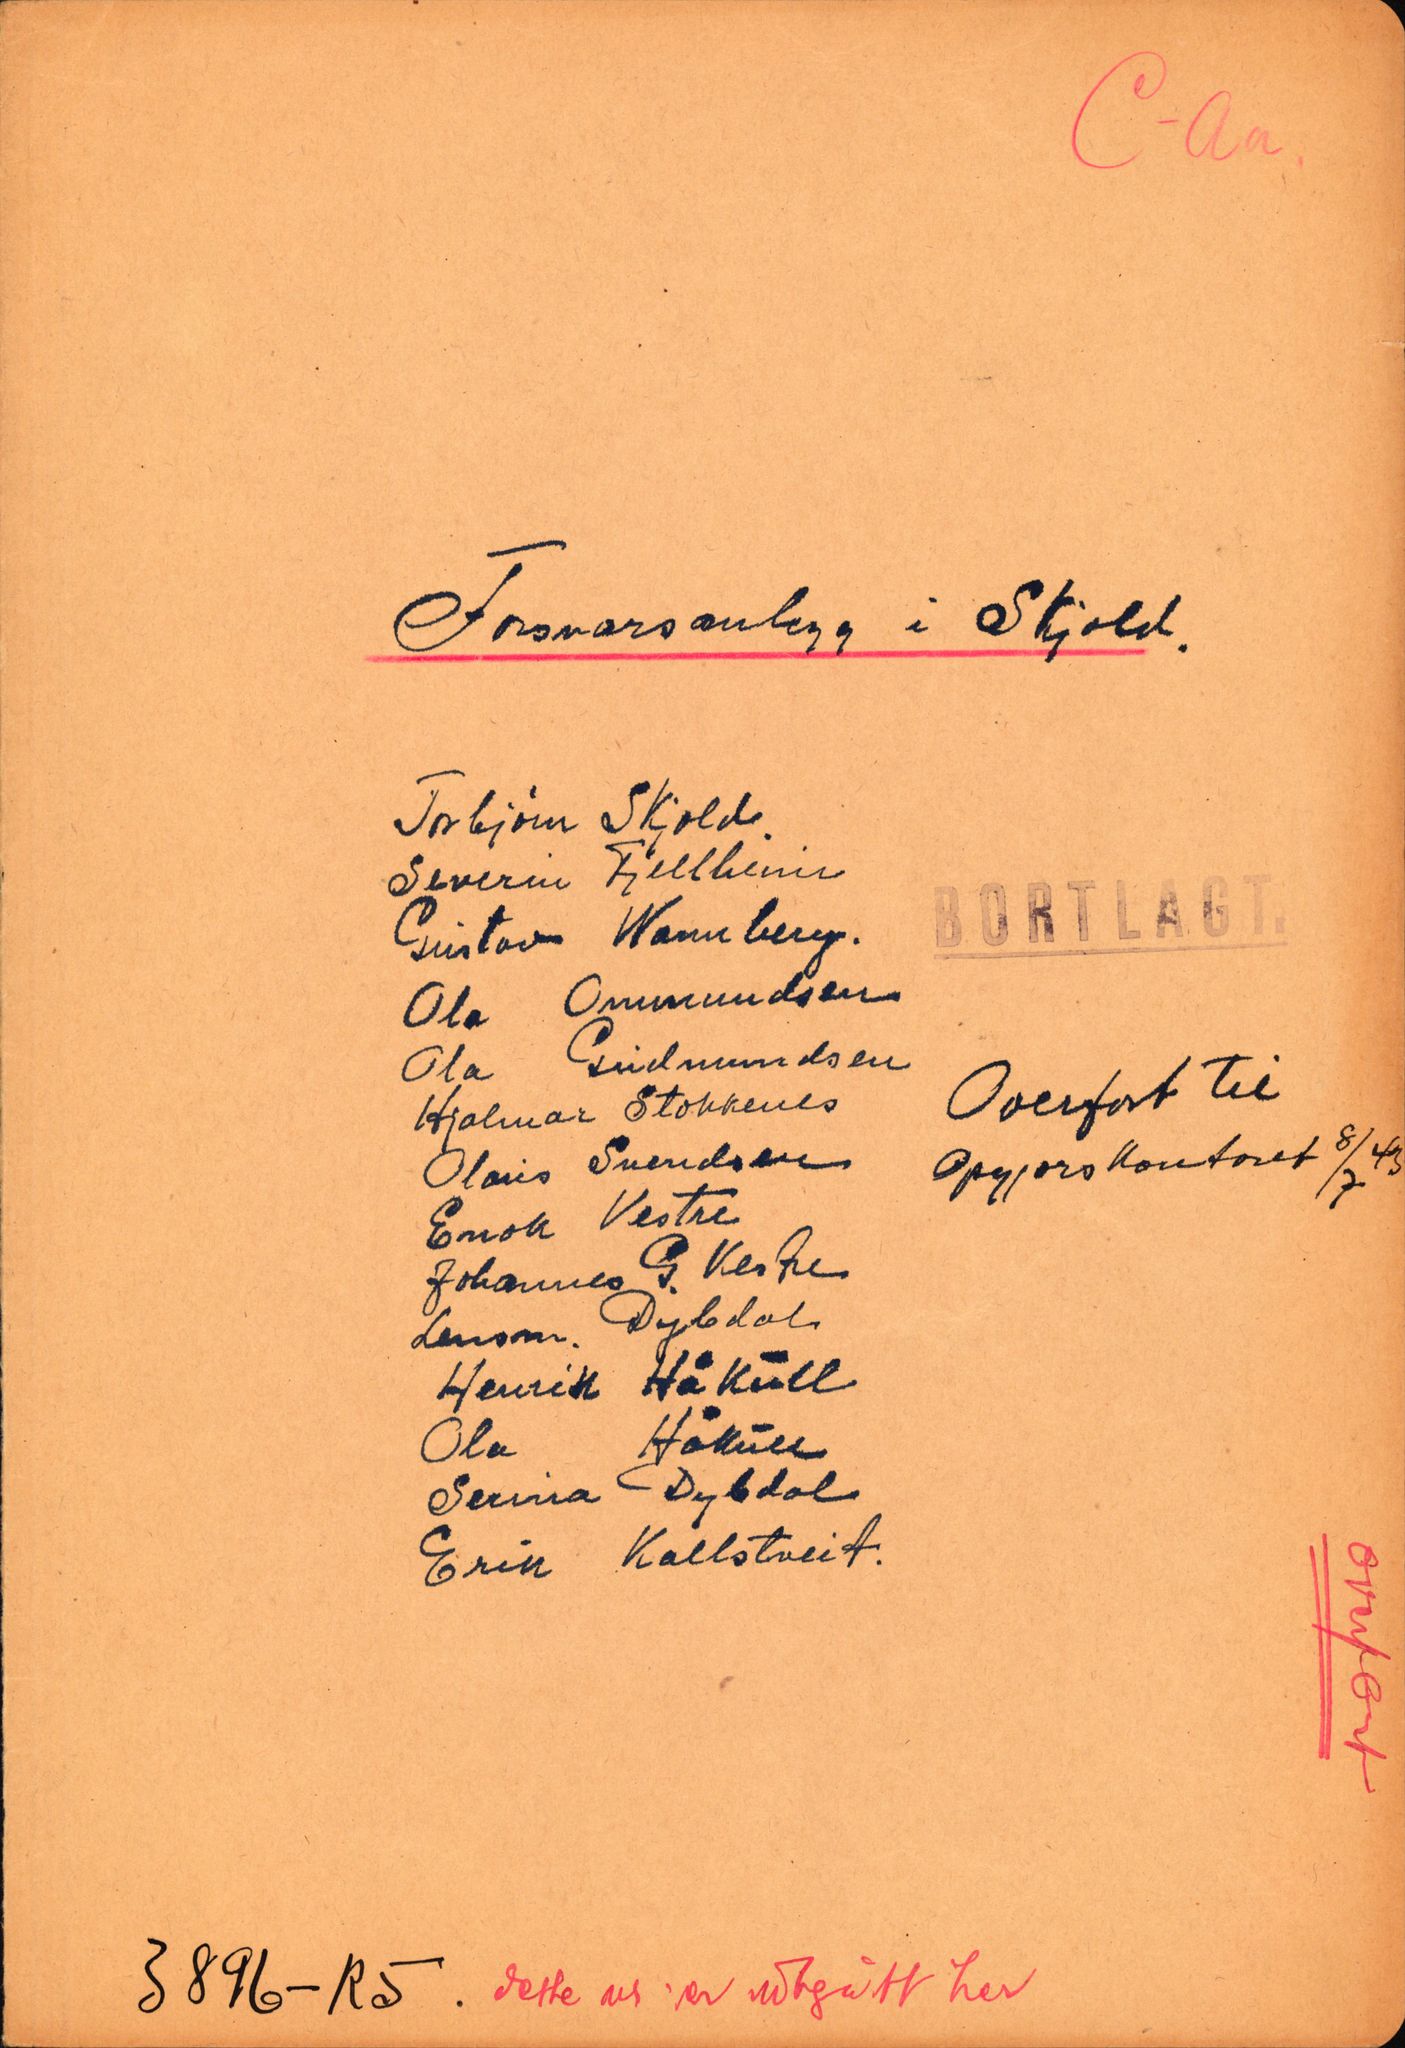 C-Aa.
Forsvarsanlegg i Skjold.
Torbjörn Skjold.
Severin Fjellheim
Gustav Wannberg.
BORTLAGT.
Ola Ommundsen
Ola Gudmundsen
Hjalmar Stokkenes
Olaus Svendsen
Overfört til
Opgjørskontoret 8/7 43
Enok Vestre
Johannes G. Vestre
Lensm. Dybdal
Henrik Håkull
Ola Håkull
Serina Dybdal
Erik Kallstveit.
overfört
3896-R5. dette nr er utgått her